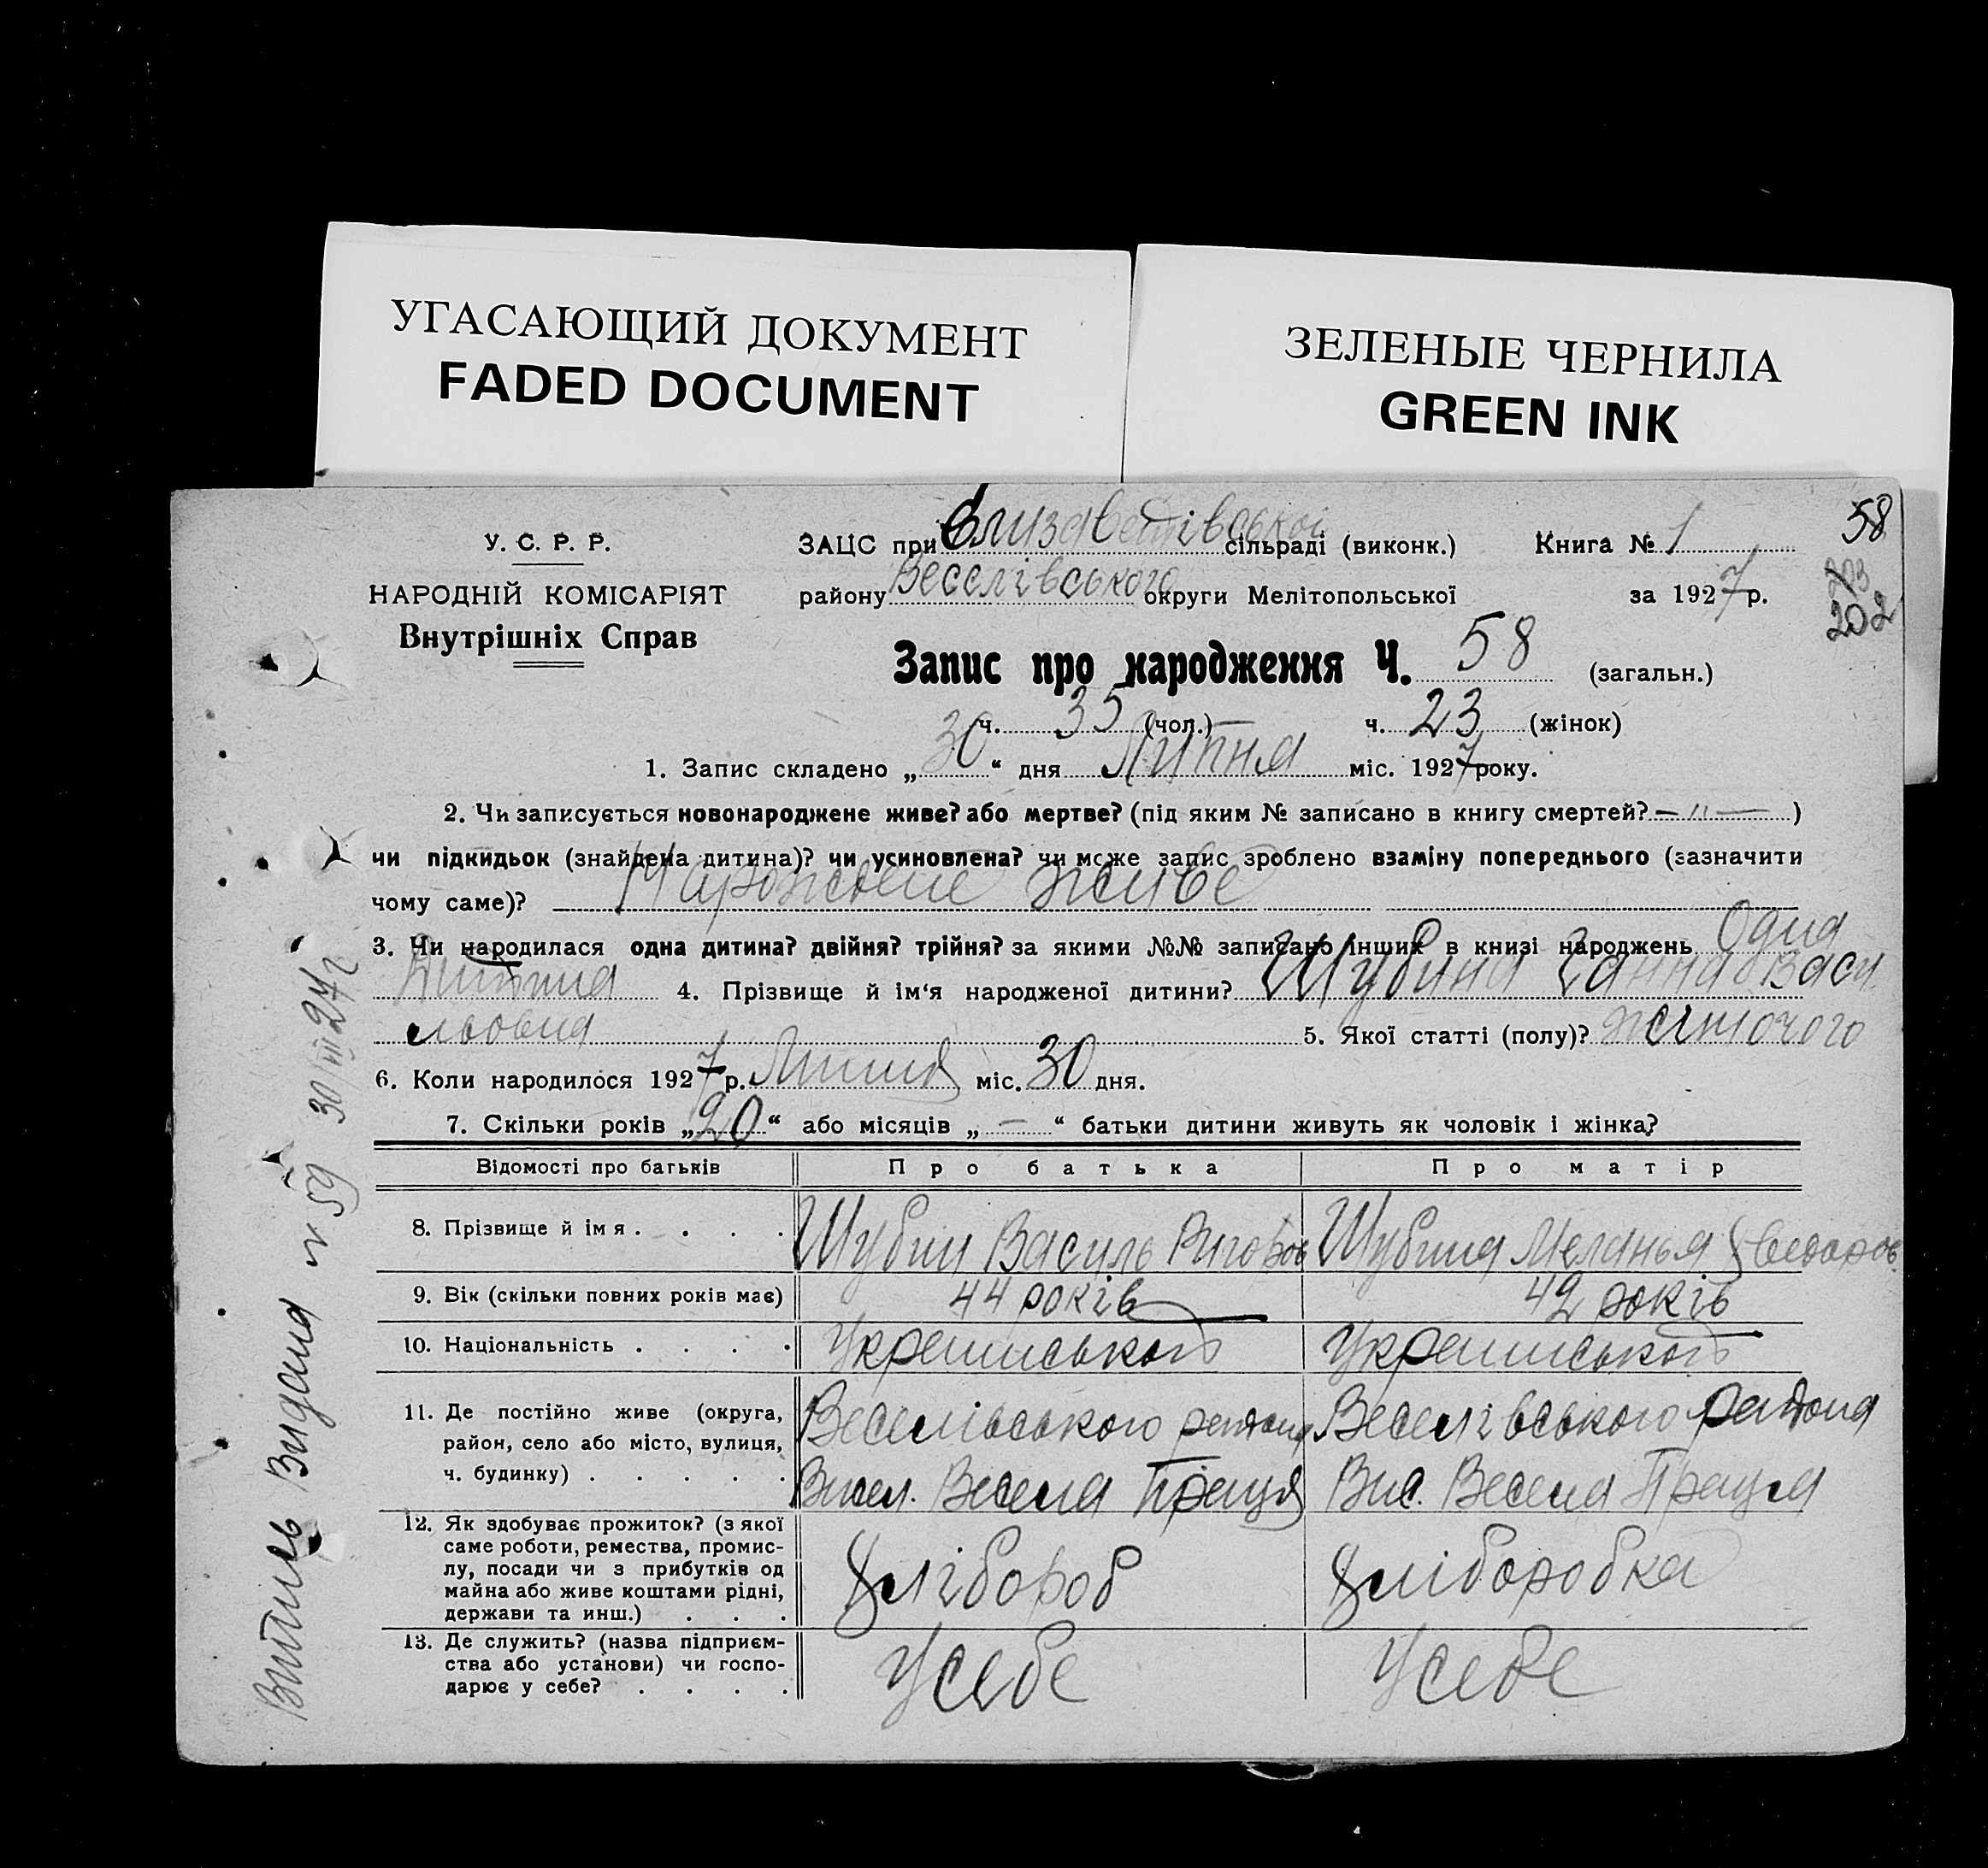 УГАСАЮЩИЙ ДОКУМЕНТ
FADED DOCUMENT
ЗЕЛЕНЫЕ ЧЕРНИЛА
GREEN INK
У. С. Р. Р.
НАРОДНІЙ КОМІСАРІЯТ
Внутрішніх Справ
ЗАЦС при Єлизаветівської сільраді (виконк.) Книга № 1
58
району Веселівського округи Мелітопольської за 1927 р.
202
Запис про народження Ч. 58 (загальн.)
ч. 35 (чол.) ч. 23 (жінок)
1. Запис складено „30“ дня Липня міс. 1927 року.
2. Чи записується новонароджене живе? або мертве? (під яким № записано в книгу смертей? — „ — )
чи підкидьок (знайдена дитина)? чи усиновлена? чи може запис зроблено взаміну попереднього (зазначити
чому саме)? Нарождене живе
3. Чи народилася одна дитина? двійня? трійня? за якими №№ записано інших в книзі народжень Одна
дитина 4. Прізвище й ім‘я народженої дитини? Шубина Ганна Васи
льовна 5. Якої статті (полу)? жіночого
6. Коли народилося 1927 р. Липня міс. 30 дня.
7. Скільки років „20“ або місяців „—“ батьки дитини живуть як чоловік і жінка?
Відомості про батьків Про батька Про матір
8. Прізвище й імя . . . . Шубин Василь Шубина Меланья
9. Вік (скільки повних років має) 44 років 42 років
10. Національність . . . . Украинського Украинського
11. Де постійно живе (округа,
район, село або місто, вулиця,
ч. будинку) . . . . .
Веселівського района
Висел. Весела Праця
Веселівського района
Вис. Весела Праця
12. Як здобуває прожиток? (з якої
саме роботи, ремества, промис-
лу, посади чи з прибутків од
майна або живе коштами рідні,
держави та инш.) . . .
Хлібороб Хліборобка
13. Де служить? (назва підприєм-
ства або установи) чи госпо-
дарює у себе? . . . .
У себе У себе
Витяль Видана № 59 30/VII 27 г